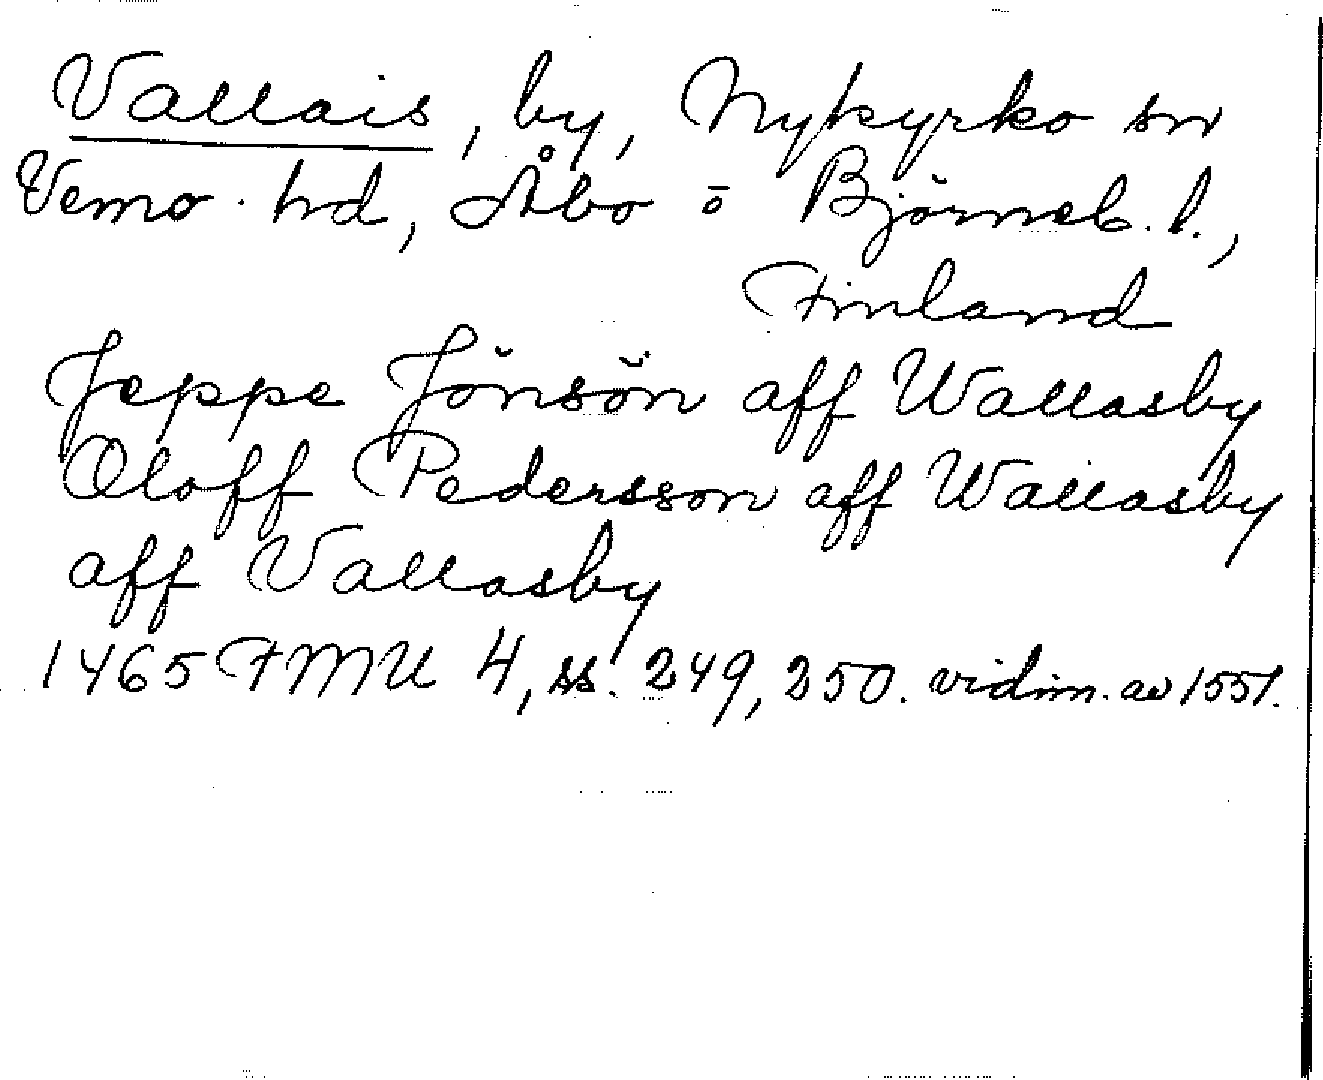 Vallais, by, Nykyrko sn
Vemo hd, Åbo o Björneb. l.,
Finland
Jeppe Jönsön aff Wallasby
Oloff Pedersson aff Wallasby
aff Vallasby
1465 FMU 4, ss. 249, 250. vidim. av 1551.